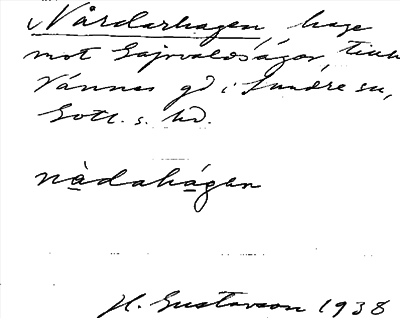 Nårdarhagen, hage
mot Gajrvaldsågar, tillh
Vännes gd i Sundre sn,
Gotl. s. hd.
nàdahágen
H. Gustavson 1938